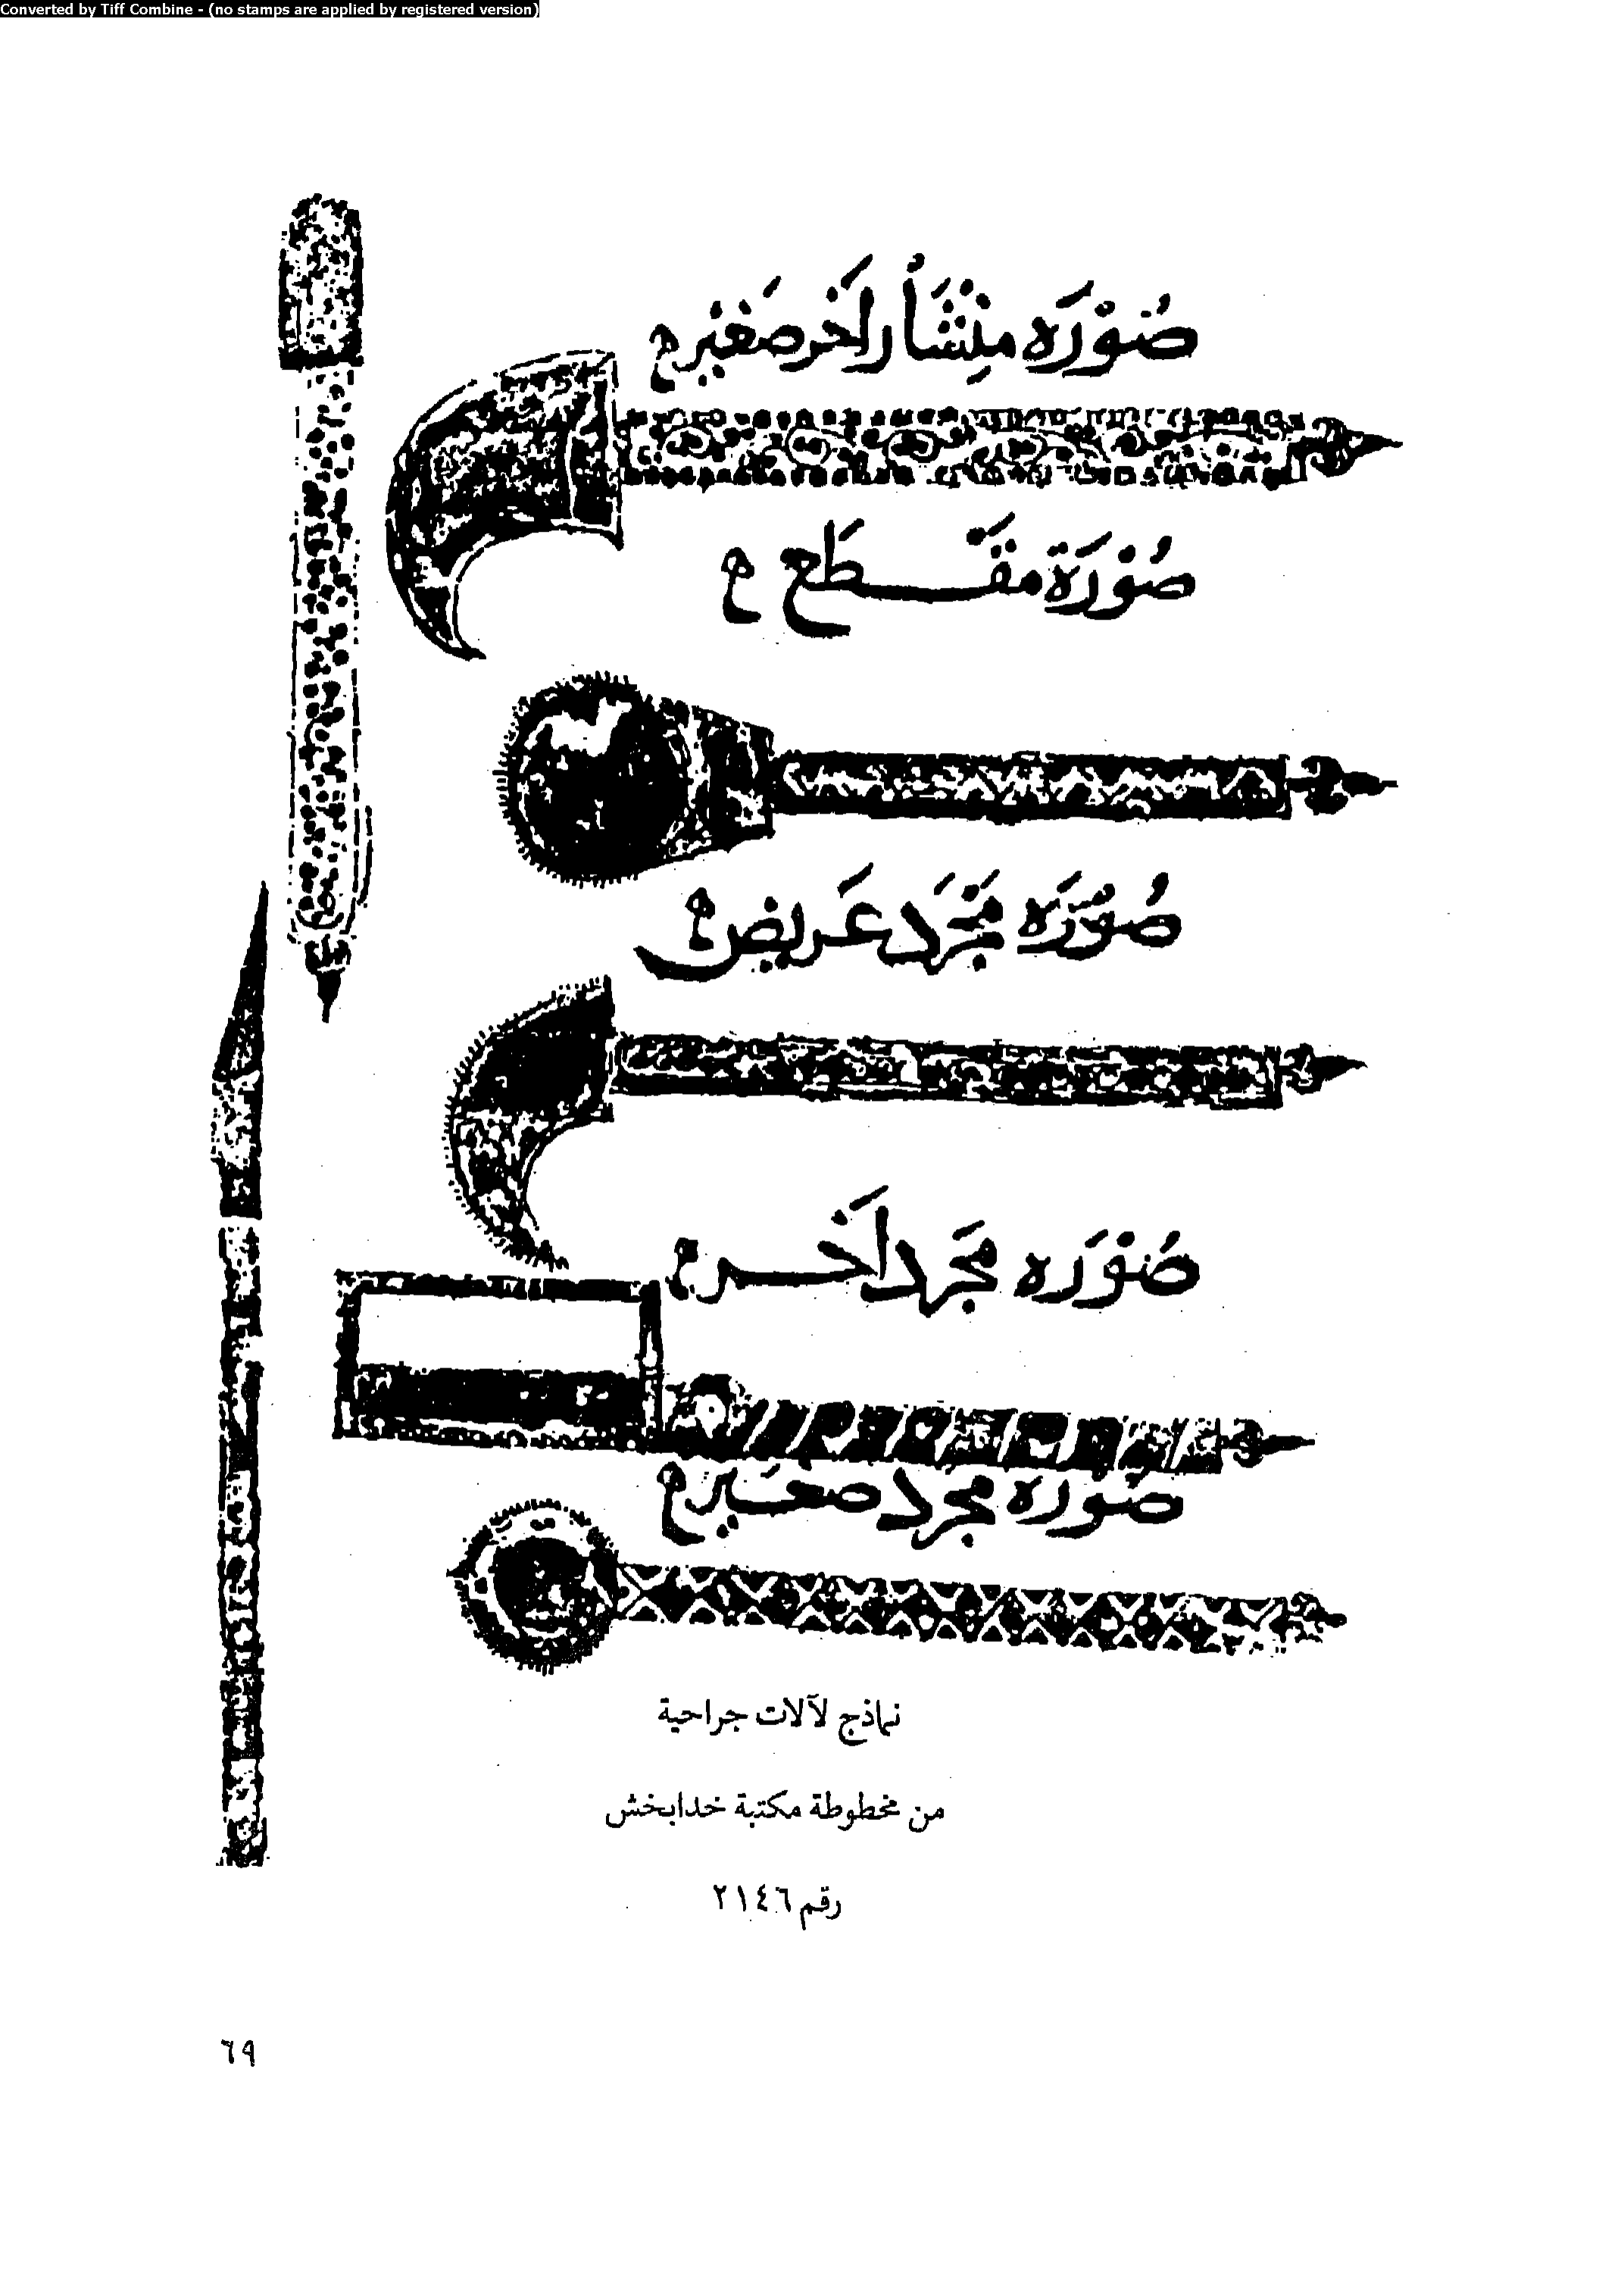 Converted by Tiff Combine - (no stamps are applied by registered version)
صُوْرَه مِنْشَار اَخَر صَغِير م
صُوْرَة مَقْطَع م
صُوْرَه مَجْرَد عَرِيض م
صُوْرَه مَجْرَد اَخَر م
صُوره مجرد صغير م
نماذج لآلات جراحية
من مخطوطة مكتبة خدابخش
رقم ٢١٤٦
٦٩